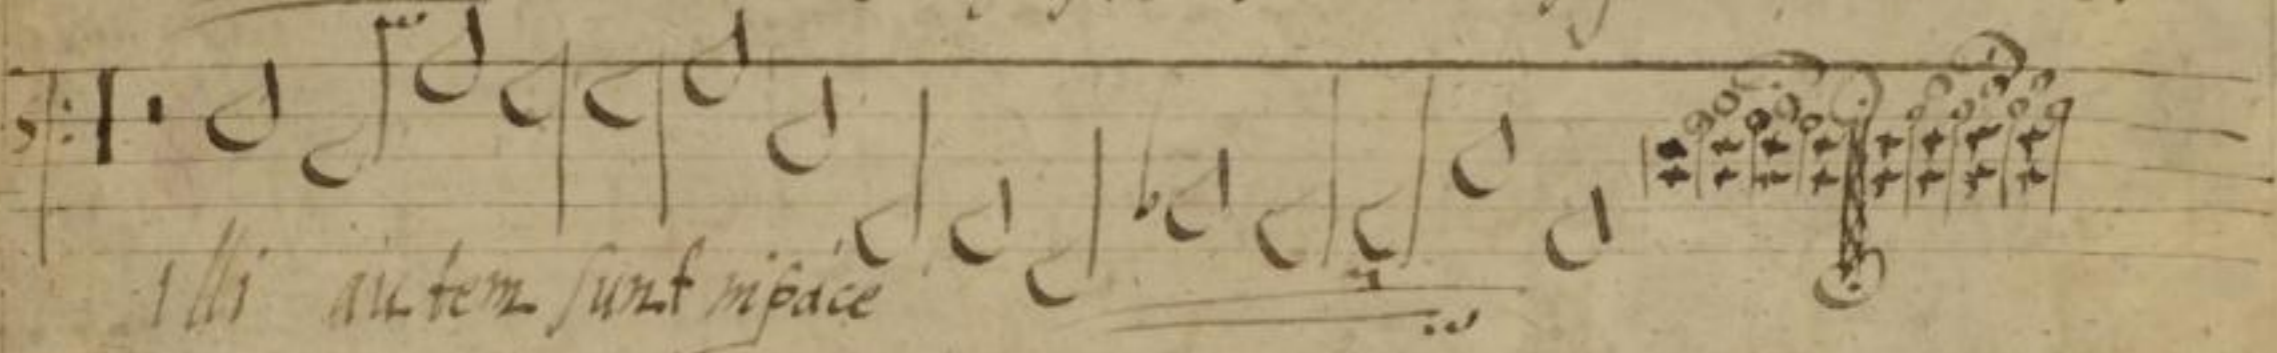 illi autem sunt in pace